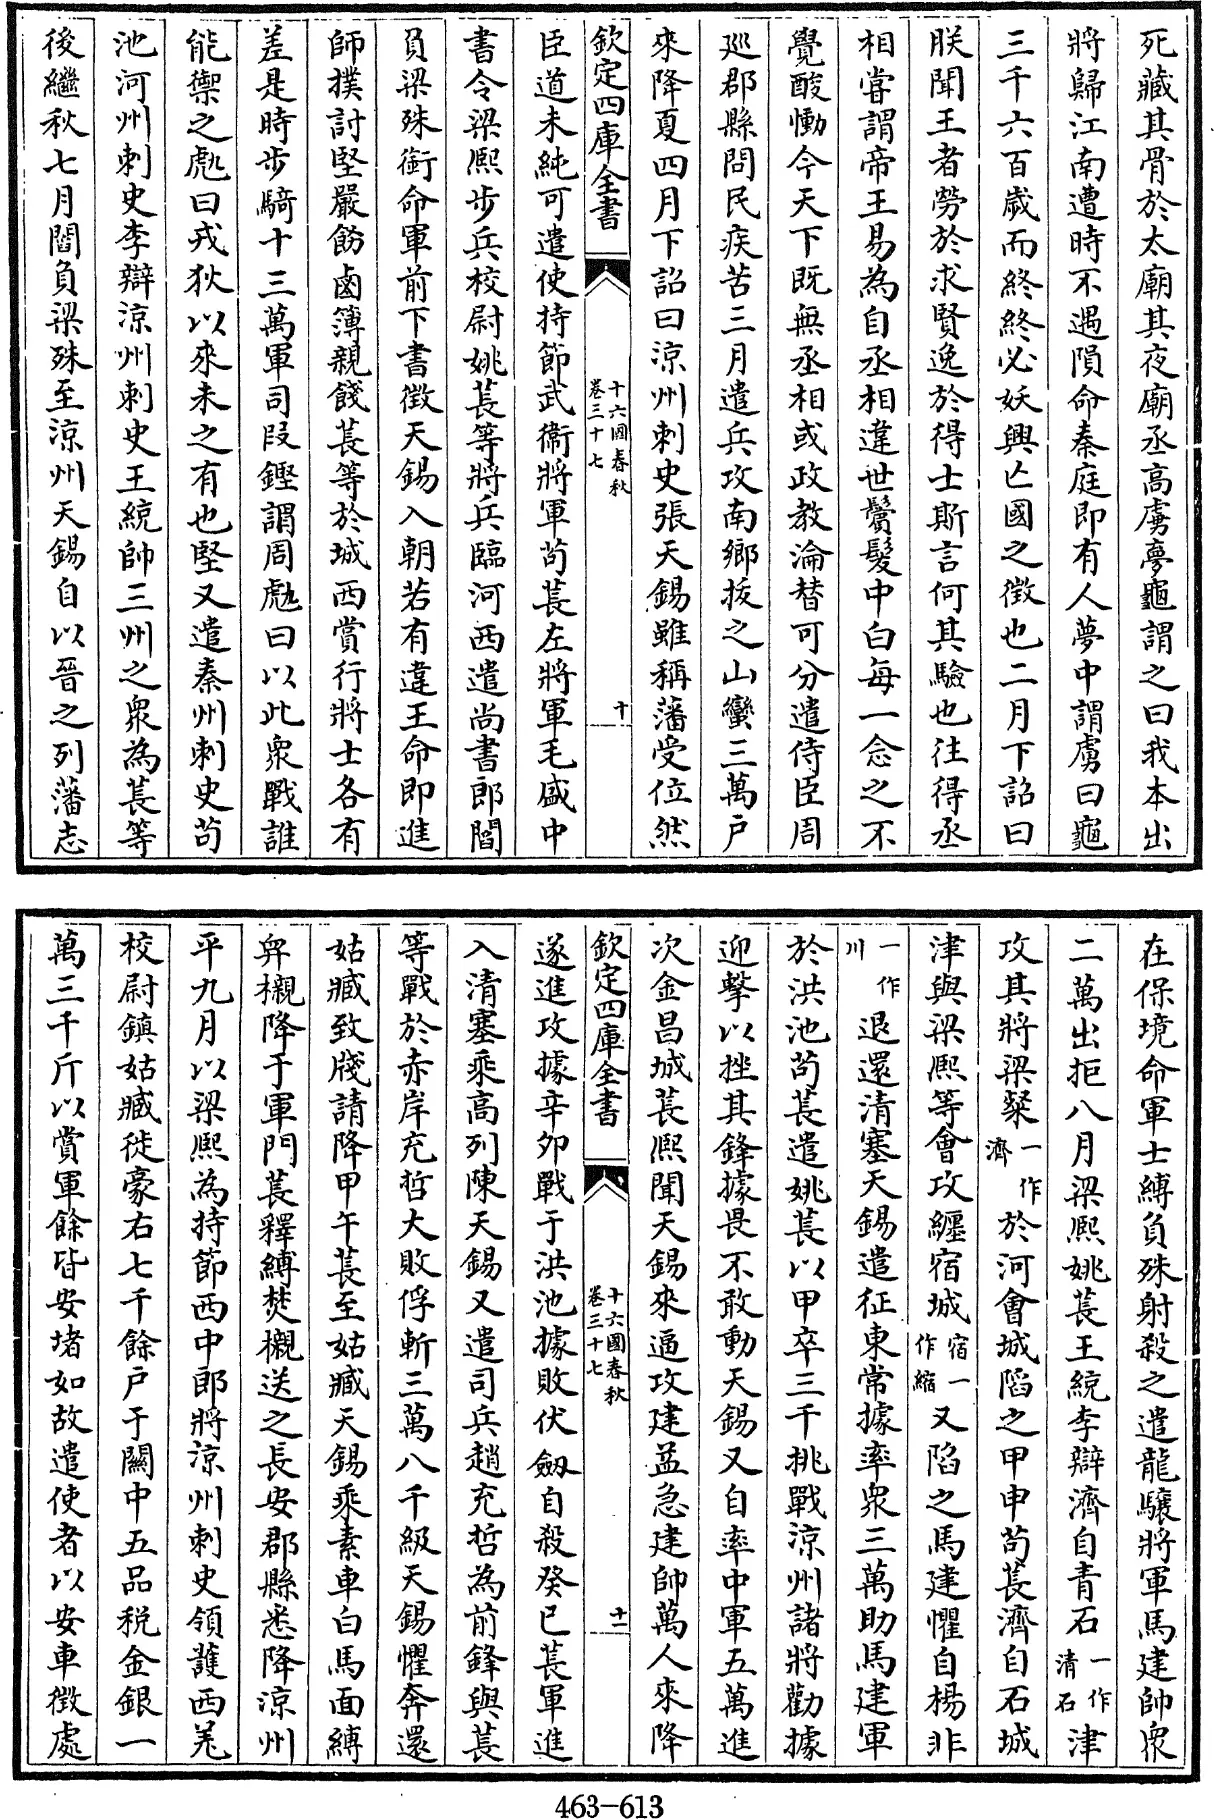 死藏其骨於太廟其夜廟丞高虜夢龜謂之曰我本出
將歸江南遭時不遇隕命秦庭即有人夢中謂虜曰龜
三千六百歲而終終必妖興亡國之徵也二月下詔曰
朕聞王者勞於求賢逸於得士斯言何其驗也往得丞
相嘗謂帝王易為自丞相違世鬚髮中白每一念之不
覺酸慟今天下既無丞相或政教淪替可分遣侍臣周
巡郡縣問民疾苦三月遣兵攻南鄉拔之山蠻三萬戶
來降夏四月下詔曰涼州刺史張天錫雖稱藩受位然
欽定四庫全書
十六國春秋
卷三十七
十
臣道未純可遣使持節武衛將軍苟萇左將軍毛盛中
書令梁熙步兵校尉姚萇等將兵臨河西遣尚書郎閻
負梁殊銜命軍前下書徵天錫入朝若有違王命即進
師撲討堅嚴飭鹵簿親餞萇等於城西賞行將士各有
差是時步騎十三萬軍司段鏗謂周虓曰以此衆戰誰
能禦之虓曰戎狄以來未之有也堅又遣秦州刺史苟
池河州刺史李辯涼州刺史王統帥三州之衆為萇等
後繼秋七月閻負梁殊至涼州天錫自以晉之列藩志
在保境命軍士縛負殊射殺之遣龍驤將軍馬建帥衆
二萬出拒八月梁熙姚萇王統李辯濟自青石一作清石津
攻其將梁粲一作濟於河會城陷之甲申苟萇濟自石城
津與梁熙等會攻纏宿城宿一作縮又陷之馬建懼自楊非
一作川退還清塞天錫遣征東常據率衆三萬助馬建軍
於洪池苟萇遣姚萇以甲卒三千挑戰涼州諸將勸據
迎擊以挫其鋒據畏不敢動天錫又自率中軍五萬進
次金昌城萇熙聞天錫來逼攻建益急建帥萬人來降
欽定四庫全書
十六國春秋
卷三十七
十一
遂進攻據辛卯戰于洪池據敗伏劍自殺癸巳萇軍進
入清塞乘高列陳天錫又遣司兵趙充哲為前鋒與萇
等戰於赤岸充哲大敗俘斬三萬八千級天錫懼奔還
姑臧致牋請降甲午萇至姑臧天錫乘素車白馬面縛
舁櫬降于軍門萇釋縛焚櫬送之長安郡縣悉降涼州
平九月以梁熙為持節西中郎將涼州刺史領護西羌
校尉鎮姑臧徙豪右七千餘戶于關中五品稅金銀一
萬三千斤以賞軍餘皆安堵如故遣使者以安車徵處
463-613